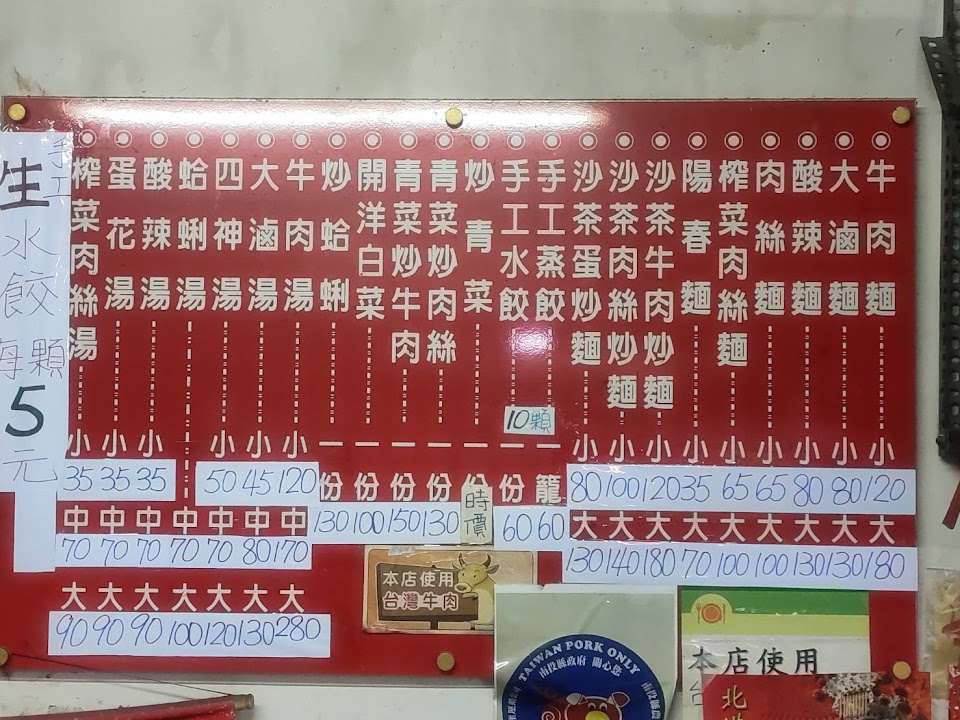 牛肉麵 小 120 大 180
大滷麵 小 80 大 130
酸辣麵 小 80 大 130
肉絲麵 小 65 大 100
榨菜肉絲麵 小 65 大 100
陽春麵 小 35 大 70
沙茶牛肉炒麵 小 120 大 180
沙茶肉絲炒麵 小 100 大 140
沙茶蛋炒麵 小 80 大 130
手工蒸餃 一籠 60
手工水餃 10顆 一份 60
炒青菜 一份 時價
青菜炒肉絲 一份 130
青菜炒牛肉 一份 150
開洋白菜 一份 100
炒蛤蜊 一份 130
牛肉湯 小 120 中 170 大 280
大滷湯 小 45 中 80 大 130
四神湯 小 50 中 70 大 120
蛤蜊湯 中 70 大 100
酸辣湯 小 35 中 70 大 90
蛋花湯 小 35 中 70 大 90
榨菜肉絲湯 小 35 中 70 大 90
手工
生水餃每顆5元
本店使用
台灣牛肉
TAIWAN PORK ONLY
南投縣政府 關心您
本店使用
台
北